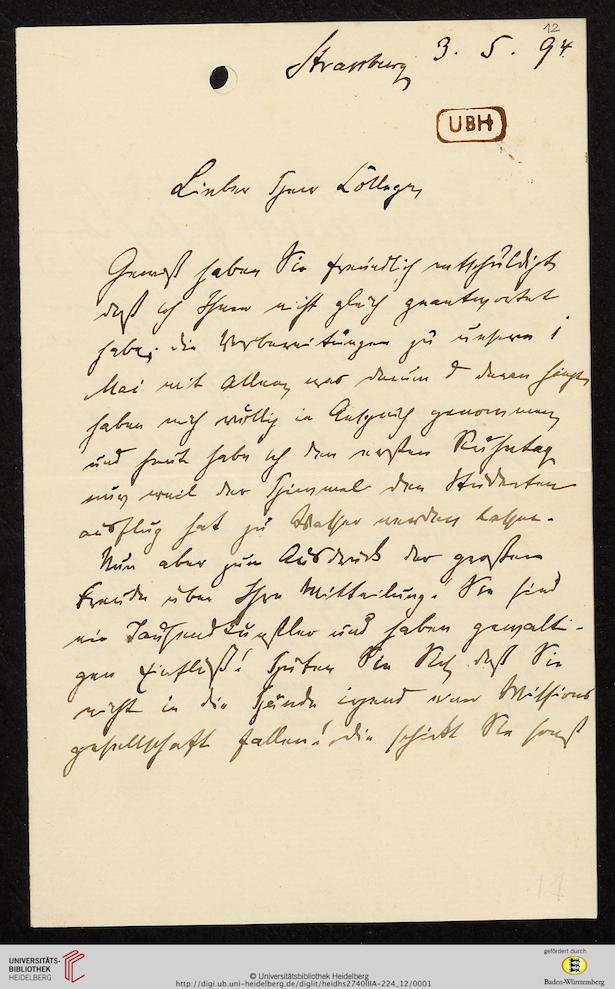 12
Strassburg 3. 5. 94
UBH
Lieber Herr College,
Gewiß haben Sie freundlich entschuldigt
daß ich Ihnen nicht gleich geantwortet
habe; die Vorbereitungen zu unserm 1
Mai mit Allem, was darum & daran hängt,
haben mich völlig in Anspruch genommen
und heut habe ich den ersten Ruhetag
nur, weil der Himmel den Studenten
ausflug hat zu Wasser werden lassen.
Nun aber zum Ausdruck der großen
Freude über Ihre Mitteilung. Sie sind
ein Tausendkünstler und haben gewalti-
gen Einfluß! Hüten Sie Sich, daß Sie
nicht in die Hände irgend einer Missions
gesellschaft fallen! die schickt Sie sonst
11
UNIVERSITÄTS-
BIBLIOTHEK
HEIDELBERG
© Universitätsbibliothek Heidelberg
http://digi.ub.uni-heidelberg.de/diglit/heidhs2740IIIA-224_12/0001
gefördert durch
Baden-Württemberg